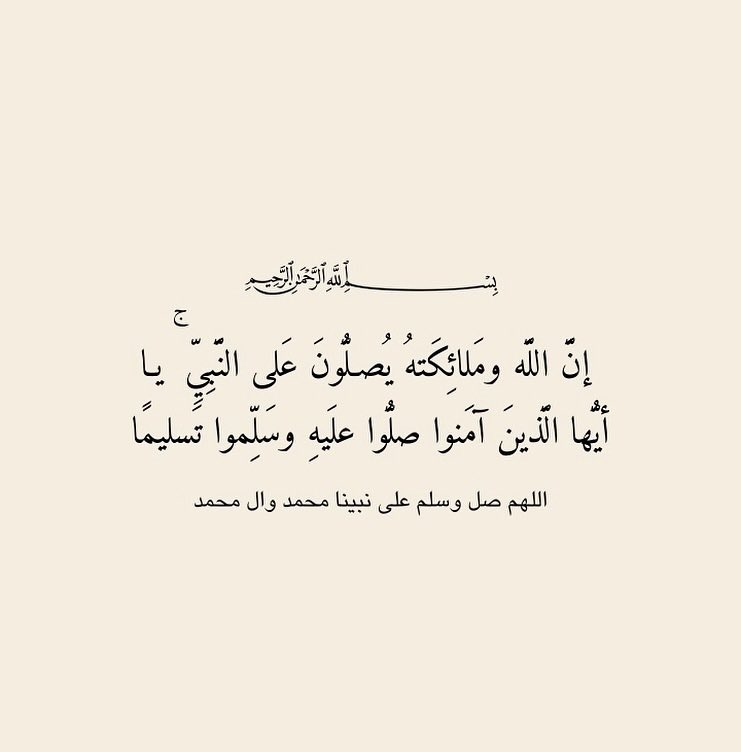 بِسْمِ اللَّهِ الرَّحْمَٰنِ الرَّحِيمِ
إنَّ اللَّه ومَلائِكَتهُ يُصلُّونَ عَلى النَّبِيِّ ۚ يا
أيُّها الَّذينَ آمَنوا صلُّوا علَيهِ وسَلِّموا تَسليمًا
اللهم صل وسلم على نبينا محمد وال محمد